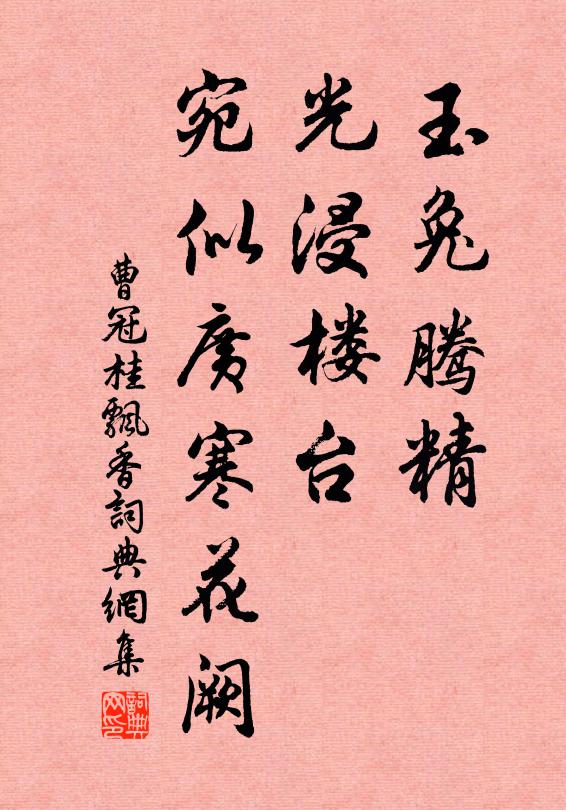 玉兔腾精
光浸楼台
宛似广寒花阙
曹冠桂飄香詞典網集
詞典网印